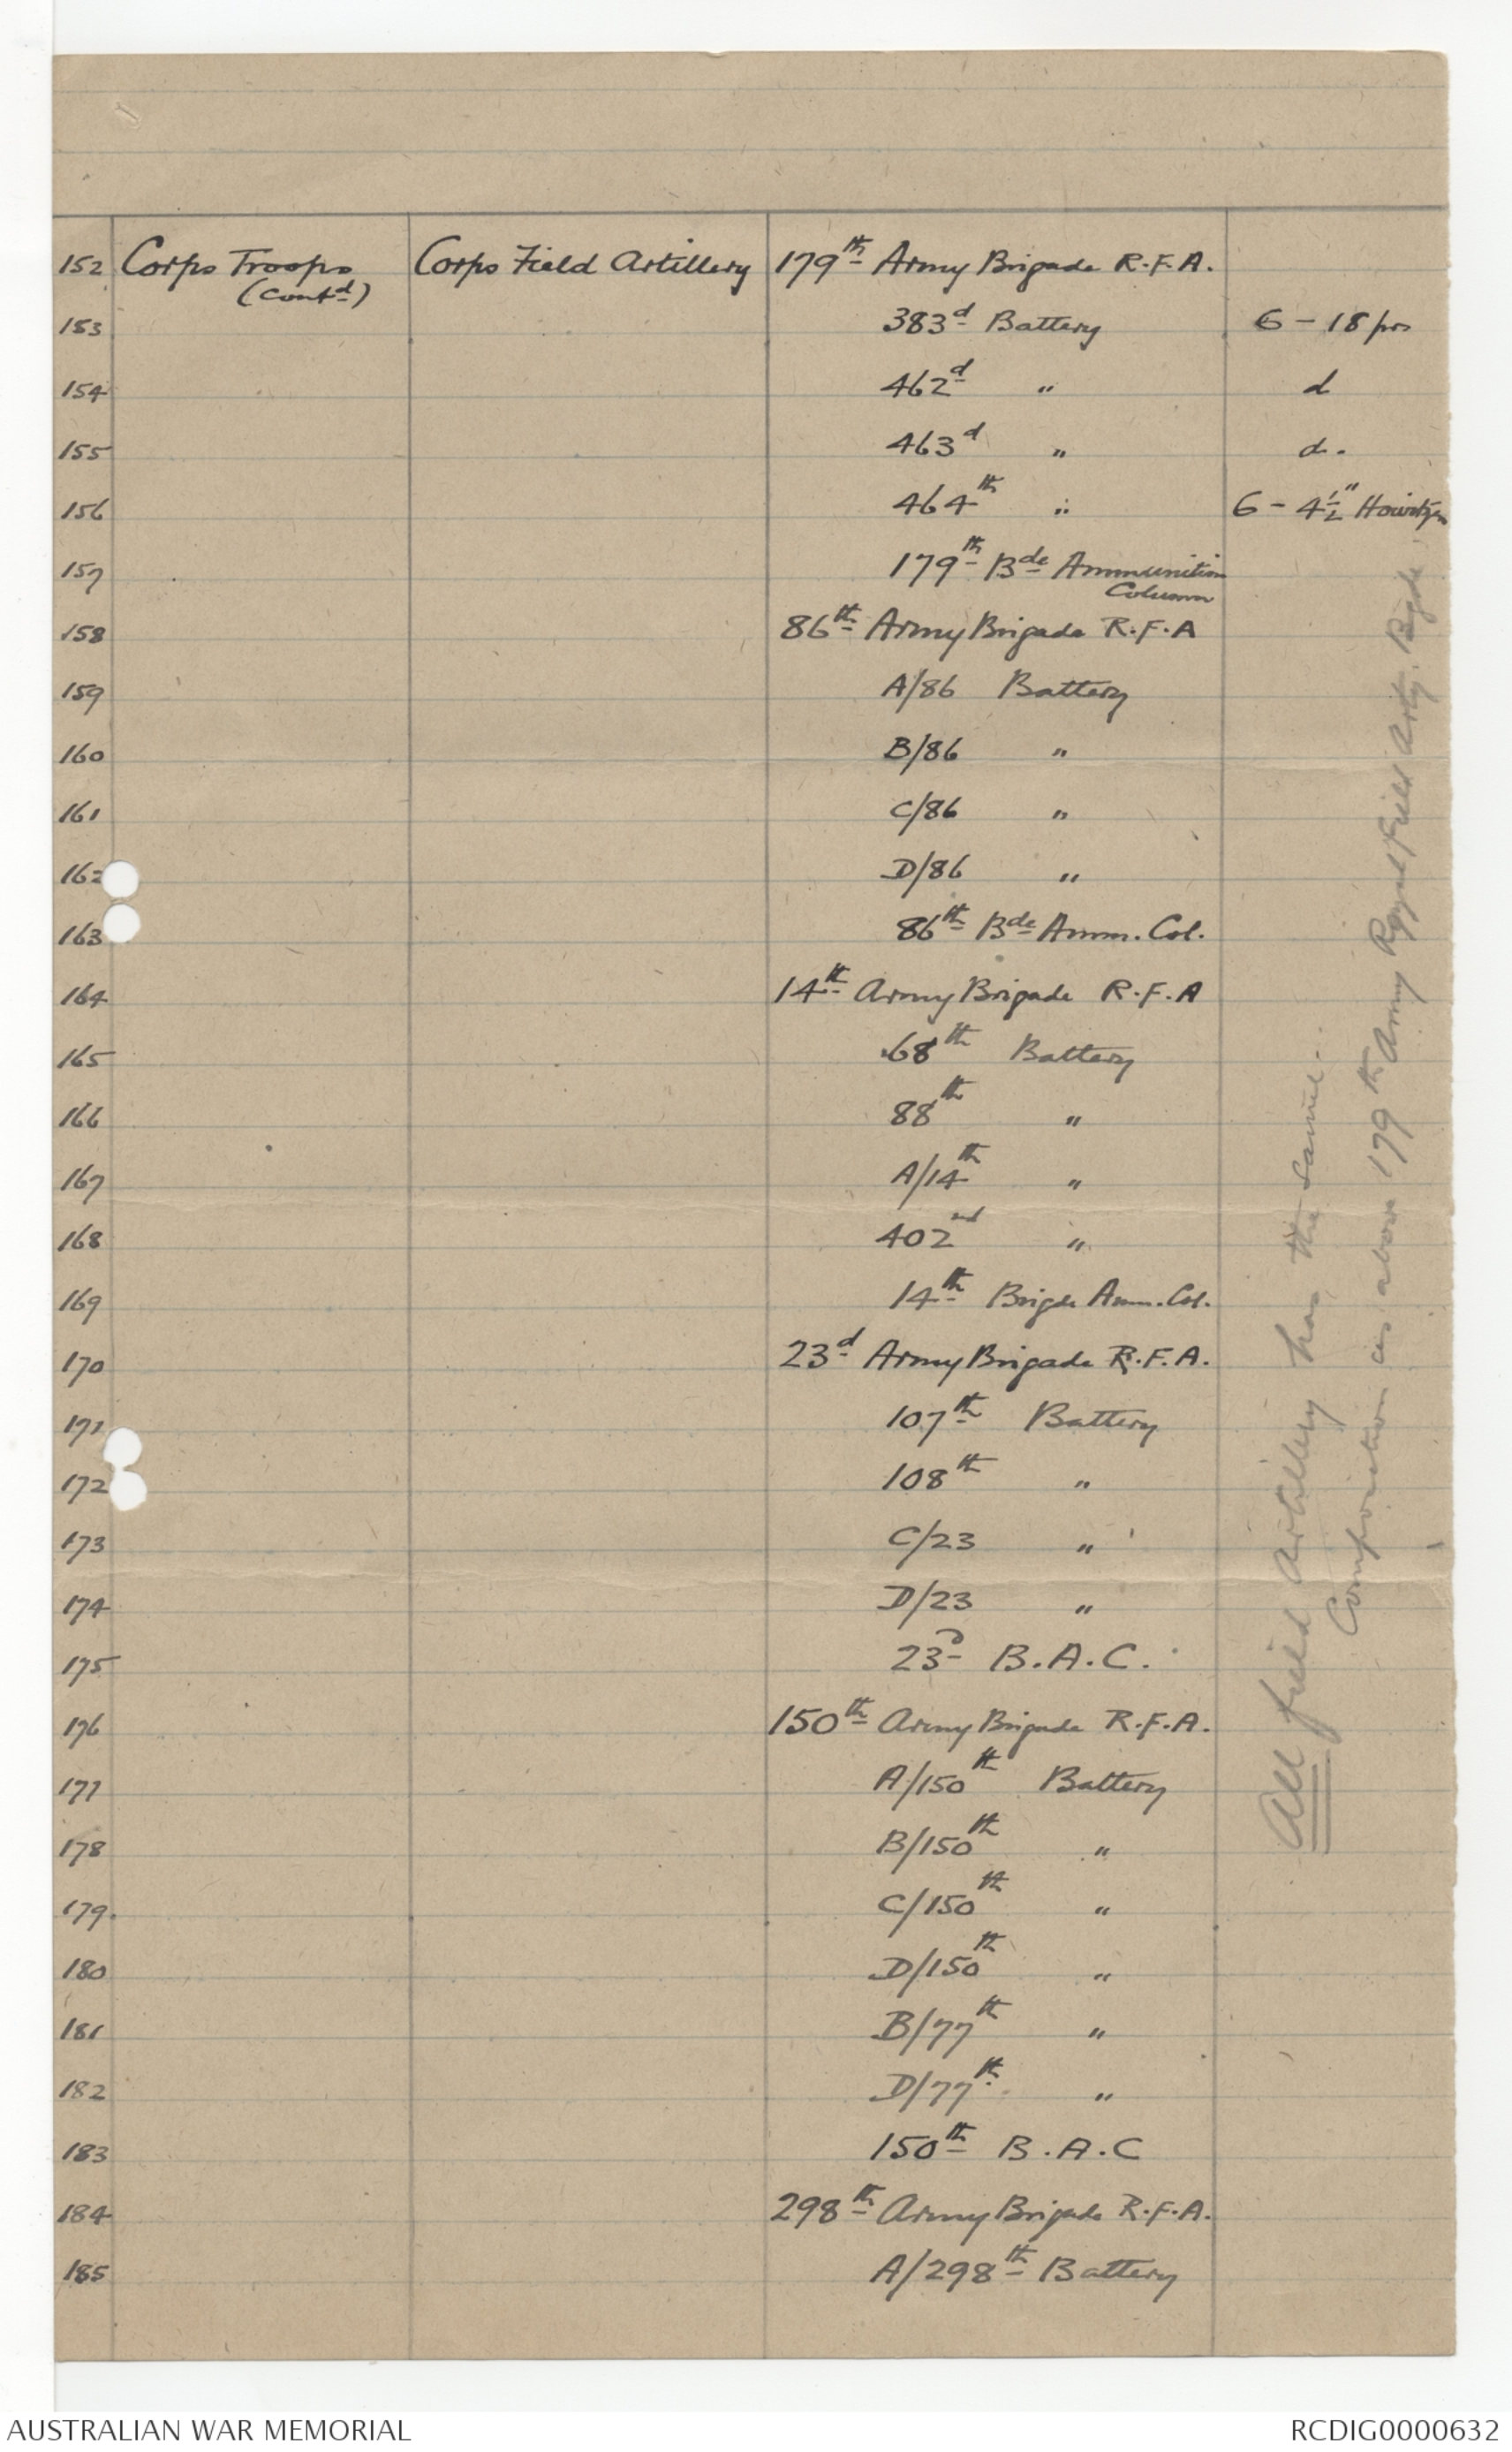 152 Corps Troops Corps Field Artillery 179th Army Brigade R.F.A.
(Contd)
153 383d Battery 6 - 18 prs
154 462d " d
155 463d " d.
156 464th " 6 - 4½" Howitzers
157 179th Bde Ammunition
Column
158 86th Army Brigade R.F.A
159 A/86 Battery
160 B/86 "
161 C/86 "
162 D/86 "
163 86th Bde Amm. Col.
164 14th Army Brigade R.F.A
165 68th Battery
166 88th "
167 A/14th "
168 402nd "
169 14th Brigde Amm. Col.
170 23d Army Brigade R.F.A.
171 107th Battery
172 108th "
173 C/23 "
174 D/23 "
175 23D B.A.C.
176 150th Army Brigade R.F.A.
177 A/150th Battery
178 B/150th "
179. C/150th "
180 D/150th "
181 B/77th "
182 D/77th "
183 150th B.A.C
184 298th Army Brigade R.F.A.
185 A/298th Battery
All field artillery has the same
Composition as above 179th Army Royal Field Arty. Bgde
AUSTRALIAN WAR MEMORIAL RCDIG0000632